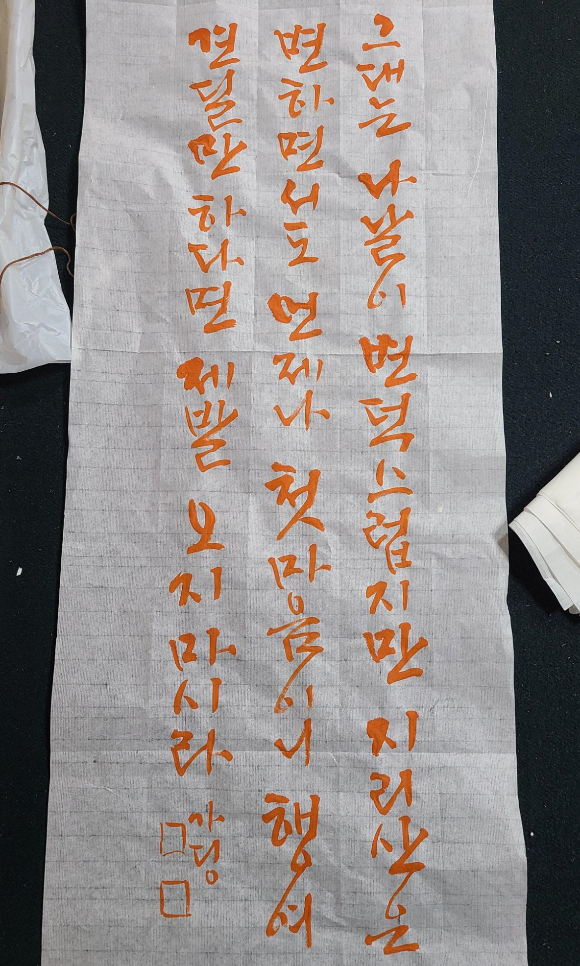 그대는 나날이 변덕스럽지만 지리산은
변하면서도 언제나 첫마음이니 행여
견딜만 하다면 제발 오지 마시라